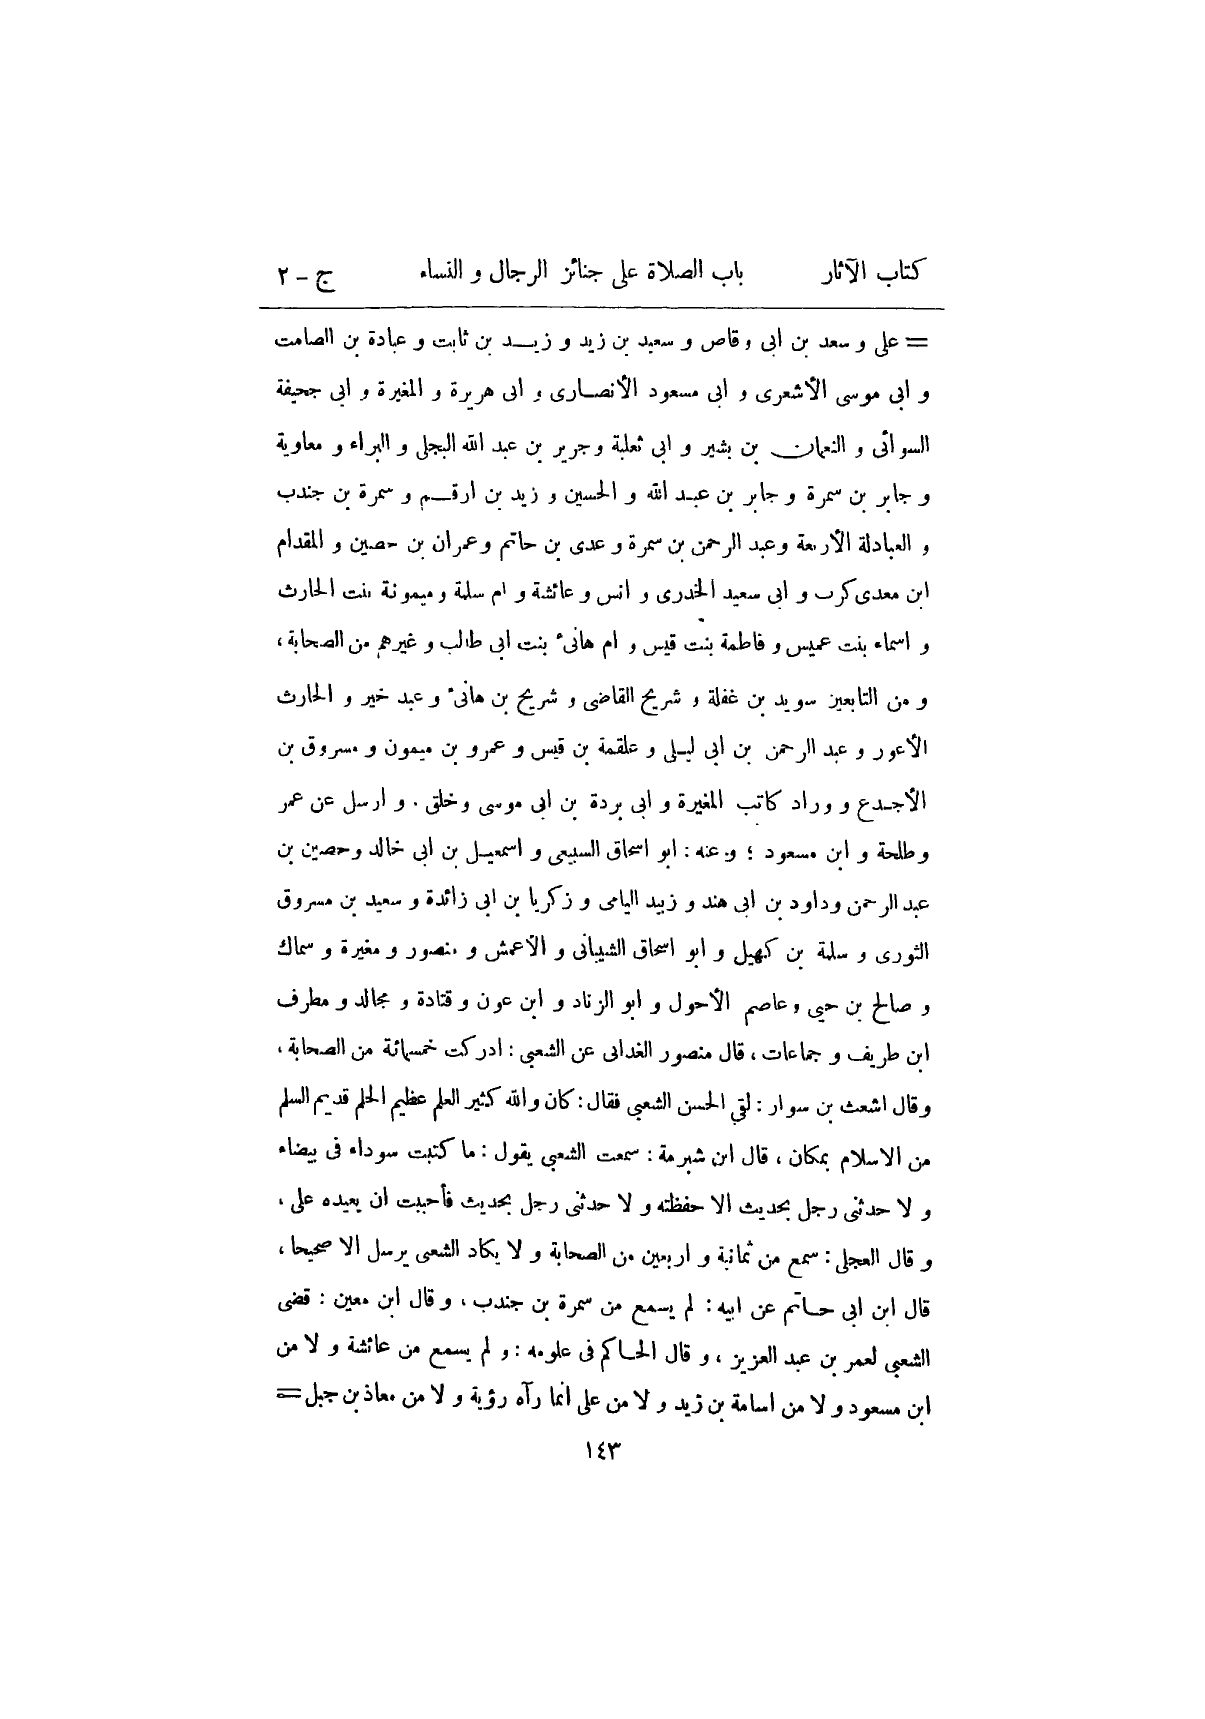 كتاب الآثار باب الصلاة على جنائز الرجال و النساء ج - ٢
= على و سعد بن ابى وقاص و سعيد بن زيد و زيد بن ثابت و عبادة بن الصامت
و ابى موسى الأشعرى و ابى مسعود الأنصارى و ابى هريرة و المغيرة و ابى جحيفة
السوائى و النعمان بن بشير و ابى ثعلبة وجرير بن عبد الله البجلى و البراء و معاوية
و جابر بن سمرة و جابر بن عبد الله و الحسين و زيد بن ارقم و سمرة بن جندب
و العبادلة الأربعة وعبد الرحمن بن سمرة و عدى بن حاتم وعمران بن حصين و المقدام
ابن معدى كرب و ابى سعيد الخدرى و انس و عائشة و ام سلمة و ميمونة بنت الحارث
و اسماء بنت عميس و فاطمة بنت قيس و ام هانىء بنت ابى طالب و غيرهم من الصحابة ،
و من التابعين سويد بن غفلة و شريح القاضى و شريح بن هانىء و عبد خير و الحارث
الأعور و عبد الرحمن بن ابى ليلى و علقمة بن قيس و عمرو بن ميمون و مسروق بن
الأجدع و وراد كاتب المغيرة و ابى بردة بن ابى موسى وخلق . و ارسل عن عمر
وطلحة و ابن مسعود ؛ و عنه : ابو اسحاق السبيعى و اسمعيل بن ابى خالد وحصين بن
عبد الرحمن وداود بن ابى هند و زبيد اليامى و زكريا بن ابى زائدة و سعيد بن مسروق
الثورى و سلمة بن كهيل و ابو اسحاق الشيبانى و الأعمش و منصور و مغيرة و سماك
و صالح بن حيى و عاصم الأحول و ابو الزناد و ابن عون و قتادة و مجالد و مطرف
ابن طريف و جماعات ، قال منصور الغدانى عن الشعبى : ادركت خمسمائة من الصحابة ،
وقال اشعث بن سوار : لقي الحسن الشعبى فقال : كان والله كثير العلم عظيم الحلم قديم السلم
من الاسلام بمكان ، قال ابن شبرمة : سمعت الشعبى يقول : ما كتبت سوداء فى بيضاء
و لا حدثنى رجل بحديث الا حفظته و لا حدثنى رجل بحديث فأحببت ان يعيده على ،
و قال العجلى : سمع من ثمانية و اربعين من الصحابة و لا يكاد الشعبى يرسل الا صحيحا ،
قال ابن ابى حاتم عن ابيه : لم يسمع من سمرة بن جندب ، و قال ابن معين : قضى
الشعبى لعمر بن عبد العزيز ، و قال الحاكم فى علومه : و لم يسمع من عائشة و لا من
ابن مسعود و لا من اسامة بن زيد و لا من على انما رآه رؤية و لا من معاذ بن جبل =
١٤٣